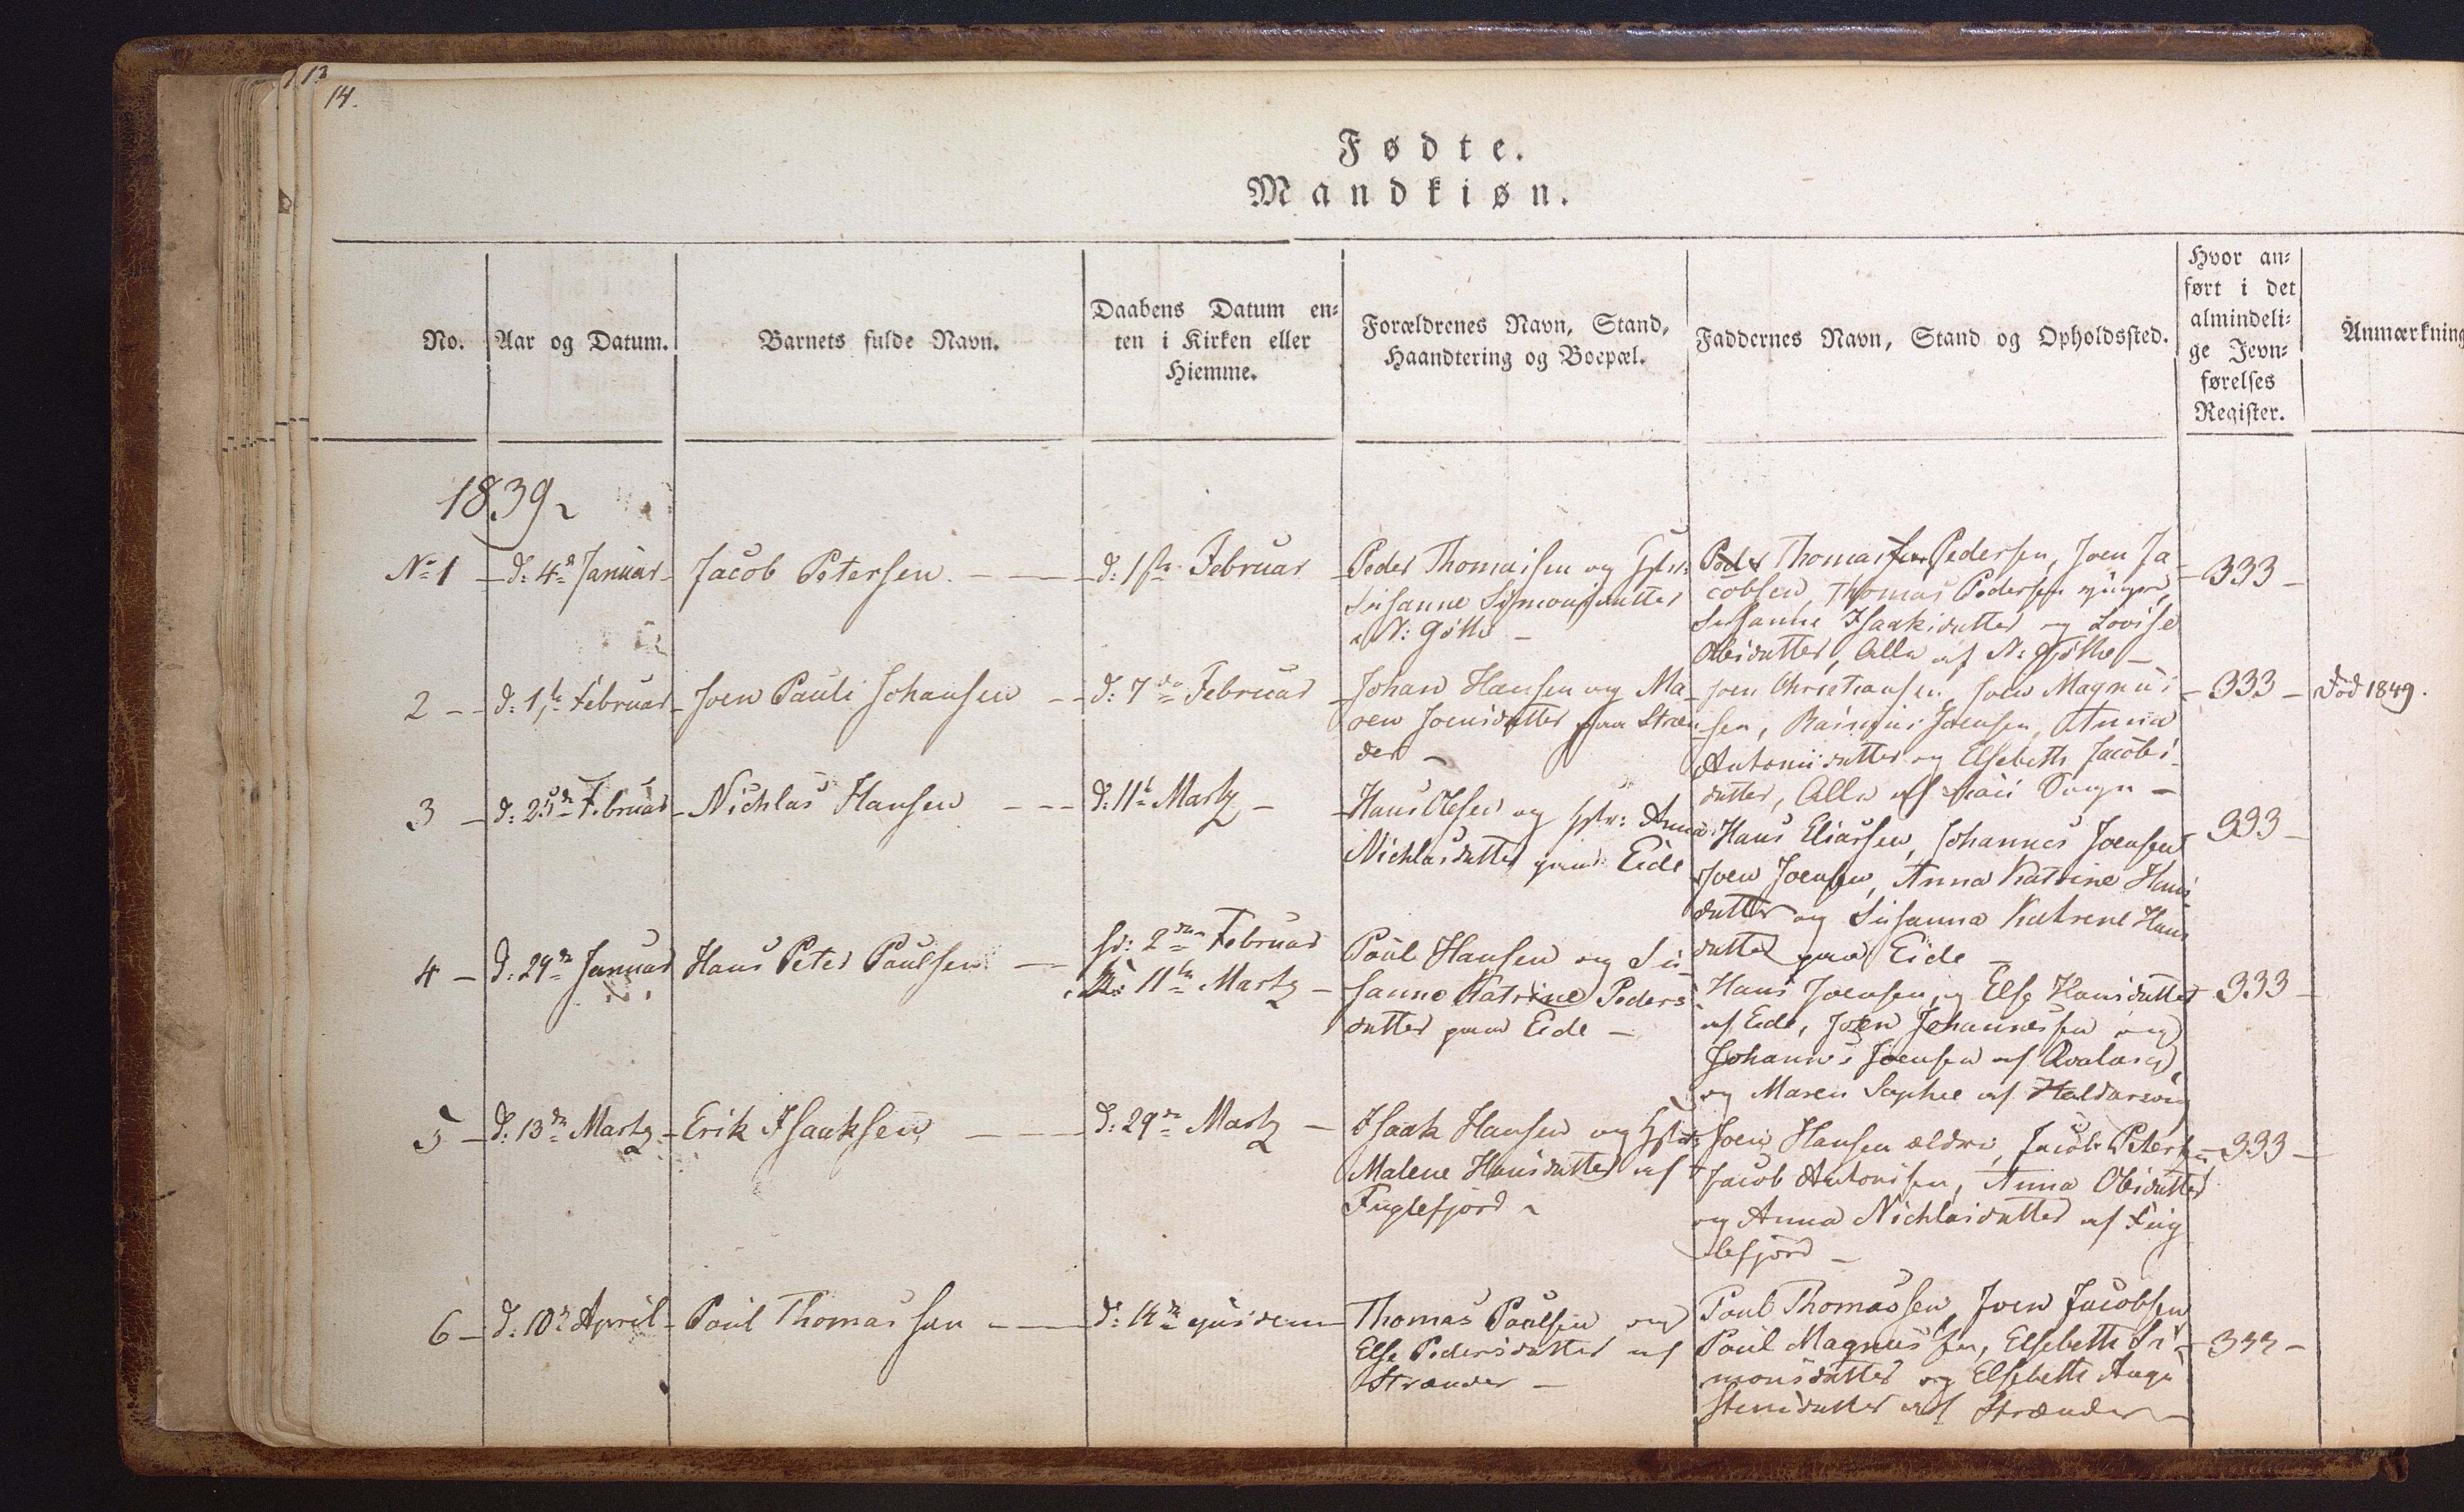 13
14.
Fødte.
Mandkiøn.
No.
Aar og Datum.
Barnets fulde Navn.
Daabens Datum en-
ten i Kirken eller
Hiemme.
Forældrenes Navn, Stand,
Haandtering og Boepæl.
Faddernes Navn, Stand og Opholdssted.
Hvor an-
ført i det
almindeli-
ge Jevn-
førelses
Register.
Anmærkning
1839
No 1 - d: 4de Januar - Jacob Petersen - d: 1ste Februar
Peder Thomassen og Hstr:
Susanne Simonsdatter
N: Gøthe -
Thomas Pedersen, Joen Ja
cobsen, Thomas Pedersen yngre,
Susanne Isaksdatter og Lovise
Olesdatter, Alle af N: Gøthe -
333 -
2 - d: 1ste Februar - Joen Pauli Johansen - d: 7de Februar
Johan Hansen og Ma
ren Joensdatter paa Stræn
der -
Joen Christiansen, Joen Magnus
sen, Rasmus Joensen, Anna
Antonisdatter og Elsebeth Jacobs
datter, Alle af Sogn -
333 -
Død 1849.
3 - d: 25de Februar - Nichlas Hansen - d: 11te Martz -
Hans Olesen og Hstr: Anna
Nichlasdatter paa Eide
Hans Eliassen, Johannes Joensen
Joen Joensen, Anna Katrine Hans
datter og Susanna Katrine Hans
datter paa Eide -
333 -
4 - d: 29de Januar Hans Peter Paulsen -
hd: 2den Februar
K: 11te Martz -
Poul Hansen og Su
sanne Katrine Peders
datter paa Eide -
Hans Joensen og Else Hansdatter
af Eide, Joen Johannessen og
Johannes Joensen af Qvalvig,
og Maren Sophie af Haldarsvig
333 -
5 - d: 13de Martz - Erik Isaksen - d: 29de Martz -
Isaak Hansen og Hstr:
Malene Hansdatter af
Fuglefjord
Joen Hansen ældre, Jacob Petersen
Jacob Antonisen, Anna Olesdatter
og Anna Nichlasdatter af Fug
lefjord -
333 -
6 - d: 10de April - Poul Thomassen - d: 14de ejusdem
Thomas Poulsen og
Else Pedersdatter af
Strænder -
Poul Thomassen, Joen Jacobsen
Poul Magnussen, Elsebeth Si
monsdatter og Elsebeth Augu
stinusdatter af Strænder -
333 -